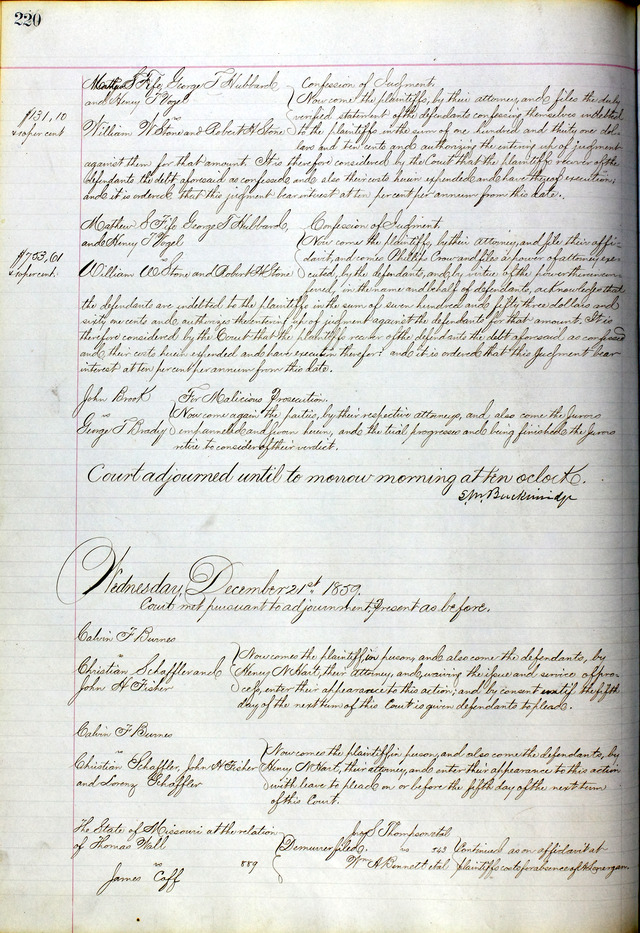 220
Mathew S Fife, George T Hubbard, Confession of Judgment.
and Henry T Vogel Now come the plaintiffs, by their attorney, and files the duly
$131,10 vs verified statement of the defendants confessing themselves indebted
&10 per cent William W Stone and Robert H Stone to the plaintiffs in the sum of one hundred and thirty one dol-
lars and ten cents and authorizing the entering up of judgment
against them for that amount. It is therefore considered by the Court that the plaintiffs recover of the
defendants the debt aforesaid as confessed and also their costs herein expended and have thereof execution;
and it is ordered that this judgment bear interest at ten per cent per annum from this date.
Mathew S Fife, George T Hubbard, Confession of Judgment.
and Henry T Vogel Now come the plaintiffs, by their attorney, and file their affi-
$753,61 vs davit, and comes Phillip Crow and files a power of attorney exe-
&10 per cent. William W Stone and Robert H Stone cuted, by the defendants, and, by virtue of the power therein con-
ferred, in the name and behalf of defendants, acknowledges that
the defendants are indebted to the plaintiffs in the sum of seven hundred and fifty three dollars and
sixty one cents and authorizes the entering up of judgment against the defendants for that amount. It is
therefore considered by the Court that the plaintiffs recover of the defendants the debt aforesaid as confessed
and their costs herein expended and have execution therefor: and it is ordered that this Judgment bear
interest at ten per cent per annum from this date.
John Brook For Malicious Prosecution.
vs Now come again the parties, by their respective attorneys, and also come the Jurors
George T Brady empannelled and sworn herein, and the trial progresses and being finished the Jurors
retire to consider of their verdict.
Court adjourned until to morrow morning at ten oclock.
S. M. Breckinridge
Wednesday, December 21st 1859.
Court met pursuant to adjournment; Present as before.
Calvin F Burnes
vs Now comes the plaintiff in person, and also come the defendants, by
Christian Schaffler and Henry N Hart, their attorney, and, waiving the issue and service of pro-
John H Fisher cess, enter their appearance to this action; and by consent until the fifth
day of the next term of this Court is given defendants to plead.
Calvin F Burnes
vs Now comes the plaintiff in person, and also come the defendants, by
Christian Schaffler, John H Fisher Henry N Hart, their attorney, and enter their appearance to this action
and Lorenz Schaffler with leave to plead on or before the fifth day of the next term
of this Court.
The State of Missouri at the relation Jas S Thompson et al
of Thomas Wall Demurrer filed. vs 743 Continued as on affidavit at
vs 889 Wm A Bennett et al plaintiffs costs for absence of
James Coff